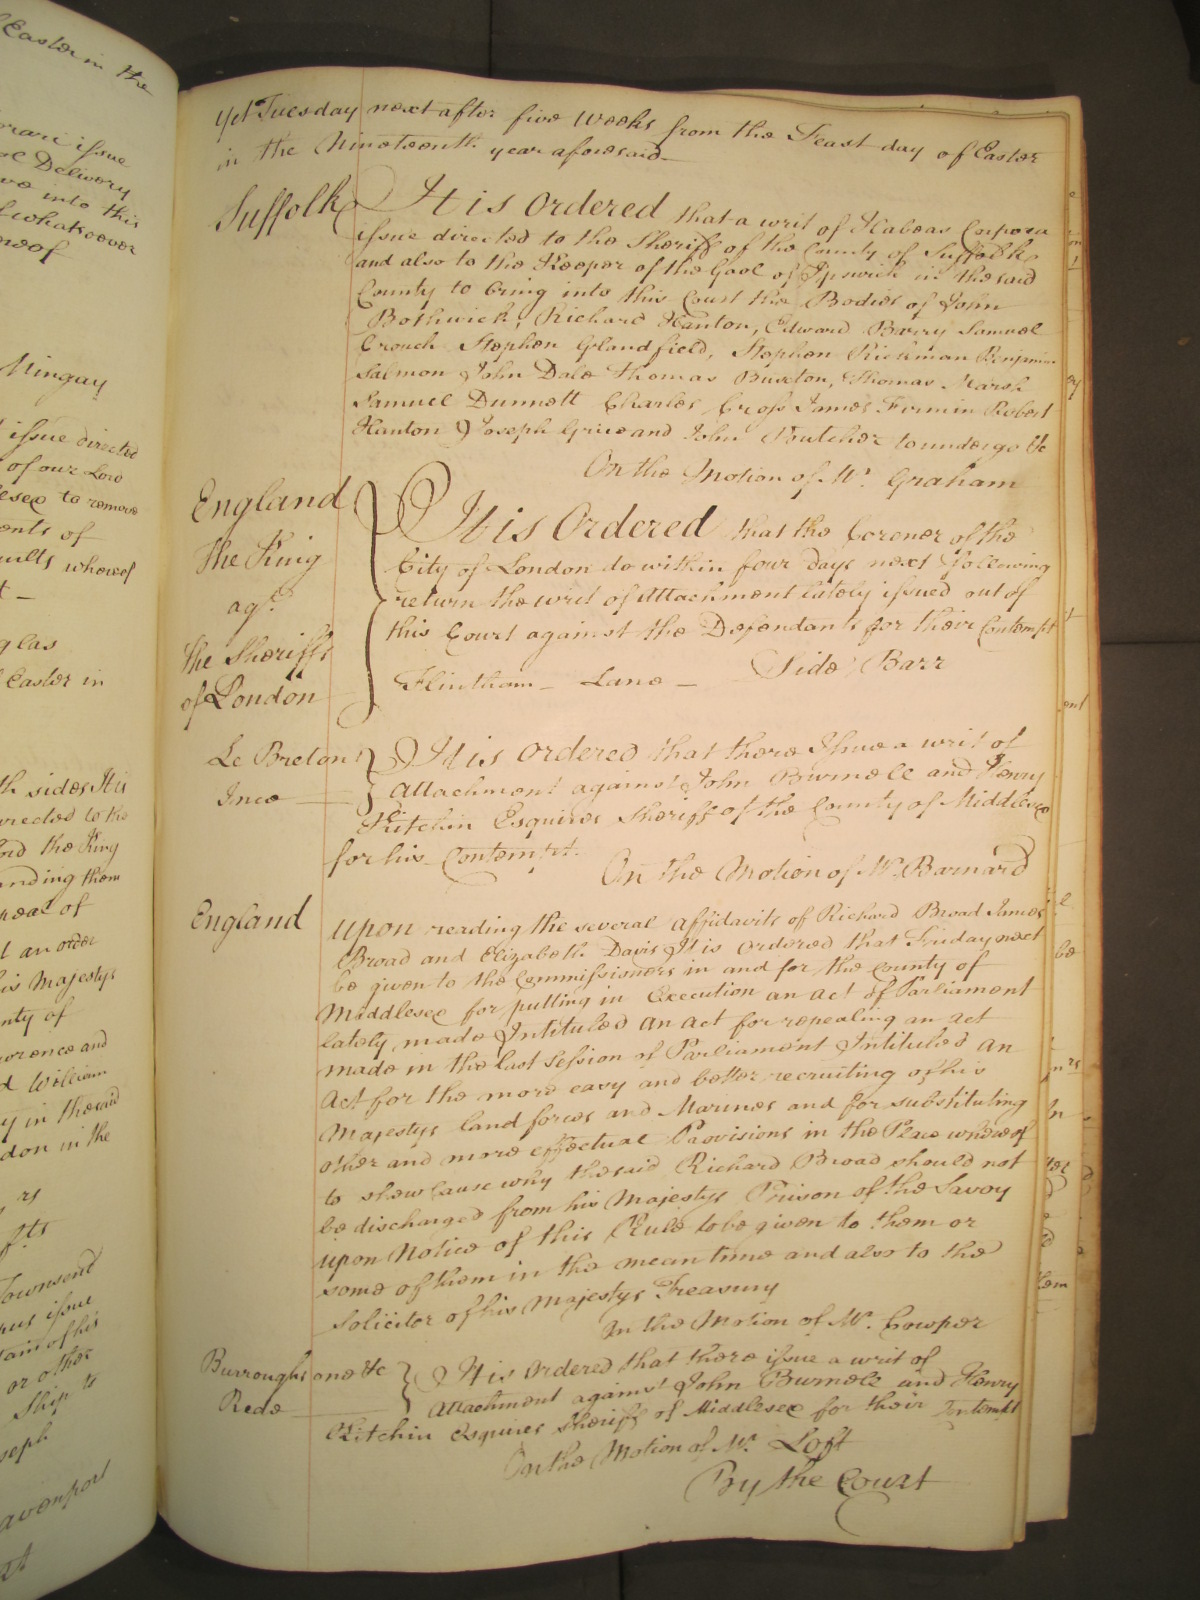 Easter in the
rari issue
ol Delivery
ve into this
whatsoever
reof
Mingay
issue directed
of our Lord
lesex to remove
ents of
uilts whereof
t —
glas
Easter in
th sides It is
irected to the
ord the King
anding them
real of
d an order
his Majestys
nty of
orence and
d William
y in the said
don in the
rs
fts
Townsend
pus issue
tain of his
or other
Ship to
seph
avenport
yet Tuesday next after five Weeks from the Feast day of Easter
in the Nineteenth year aforesaid
Suffolk It is Ordered that a writ of Habeas Corpora
issue directed to the Sheriff of the County of Suffolk
and also to the Keeper of the Gaol of Ipswich in the said
County to bring into this Court the Bodies of John
Bothwick, Richard Hanton, Edward Barry Samuel
Crouch Stephen Glandfield, Stephen Rickman Benjamin
Salmon John Dale Thomas Buxton, Thomas Marsh
Samuel Dunnett Charles Cross James Firmin Robert
Hanton Joseph Grice and John Boutcher to undergo &c
On the Motion of Mr. Graham
England It is Ordered that the Coroner of the
The King City of London do within four days next following
agt. return the writ of Attachment lately issued out of
The Sheriffs this Court against the Defendants for their Contempt
of London Flintham — Lane — Side Barr
Le Breton It is ordered that there Issue a writ of
Ince Attachment against John Burnell and Henry
Kitchin Esquires Sheriff of the County of Middlesex
for his Contempt.
On the Motion of Mr. Barnard
England upon reading the several affidavits of Richard Broad James
Broad and Elizabeth Davis It is ordered that Friday next
be given to the Commissioners in and for the County of
Middlesex for putting in Execution an act of Parliament
lately made Intituled an act for repealing an act
made in the last Session of Parliament Intituled an
Act for the more easy and better recruiting of his
Majestys land forces and Marines and for substituting
other and more effectual Provisions in the Place whereof
to shew cause why the said Richard Broad should not
be discharged from his Majestys Prison of the Savoy
upon Notice of this Rule to be given to them or
some of them in the mean time and also to the
Solicitor of his Majestys Treasury
On the Motion of Mr. Cowper
Burroughs one &c It is Ordered that there issue a writ of
Rede Attachment against John Burnell and Henry
Kitchin Esquires Sheriff of Middlesex for their Contempt
On the Motion of Mr. Loft
By the Court